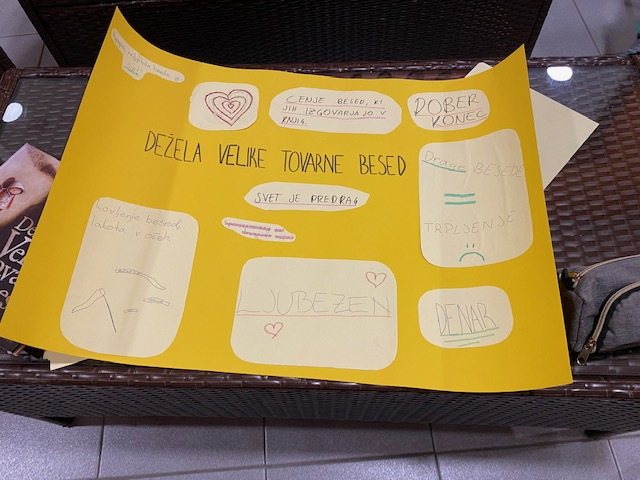 je
CENJE BESED, KI
JIH IZGOVARJAJO V
KNJIG.
DOBER
KONEC
DEŽELA VELIKE TOVARNE BESED
Drage BESEDE
=
TRPLJENJE
SVET JE PREDRAG
Lovljenje besed,
lakota v očeh
LJUBEZEN
DENAR
De